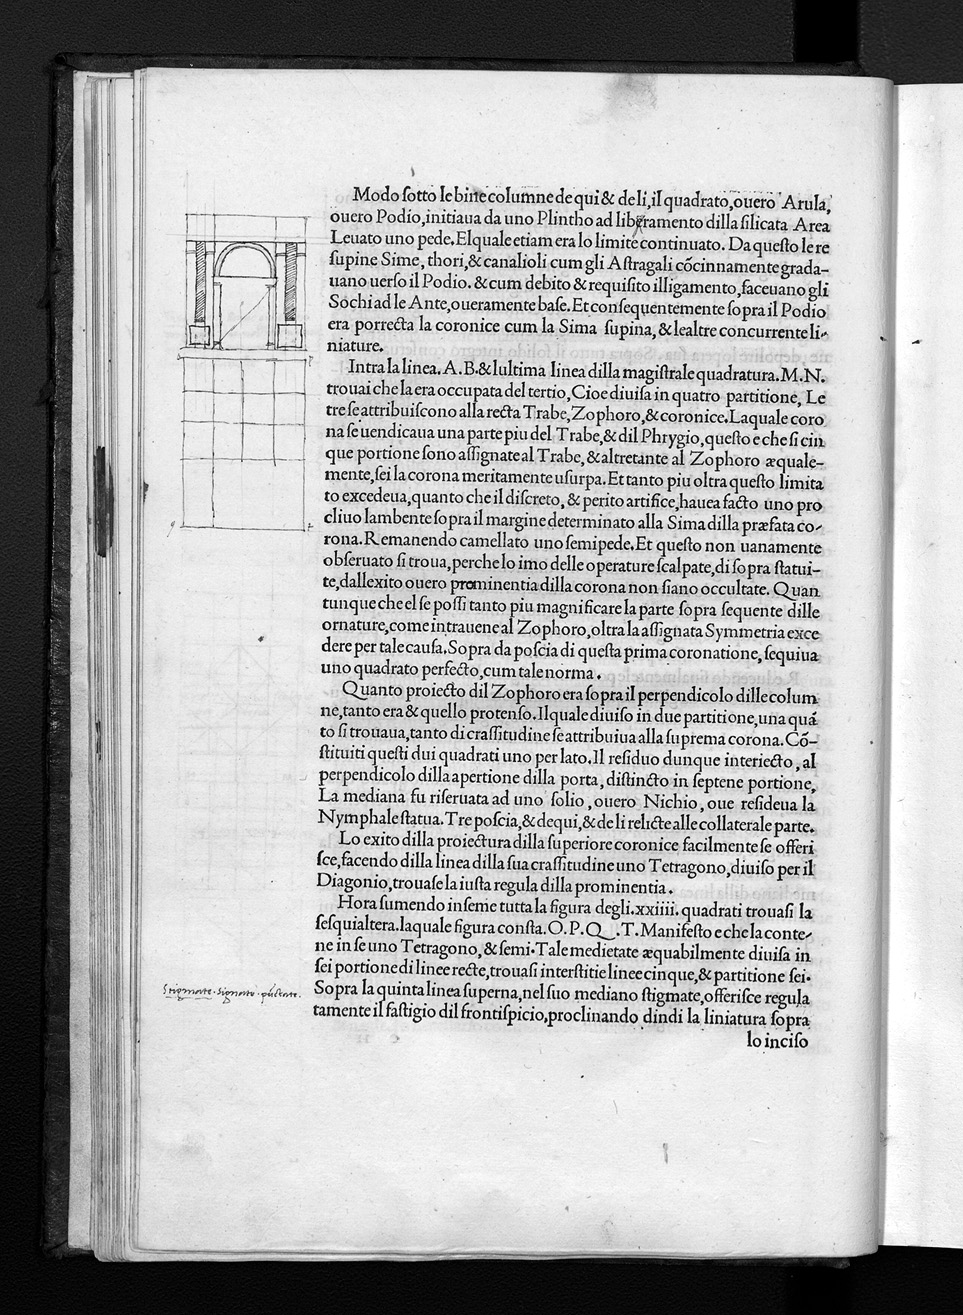 Modo ſotto le bine columne de qui & de li, il quadrato, ouero Arula,
ouero Podio, initiaua da uno Plintho ad liberamento dilla ſilicata Area
Leuato uno pede. El quale etiam era lo limite continuato. Da queſto le re
ſupine Sime, thori, & canalioli cum gli Aſtragali cõcinnamente grada-
uano uerſo il Podio. & cum debito & requiſito illigamento, faceuano gli
Sochi ad le Ante, oueramente baſe. Et conſequentemente ſopra il Podio
era porrecta la coronice cum la Sima ſupina, & le altre concurrente li-
niature.
Intra la linea. A. B. & lultima linea dilla magiſtrale quadratura. M. N.
trouai che la era occupata del tertio, Cioe diuiſa in quatro partitione, Le
tre ſe attribuiſcono alla recta Trabe, Zophoro, & coronice. Laquale coro
na ſe uendicaua una parte piu del Trabe, & dil Phrygio, queſto e che ſi cin
que portione ſono aſſignate al Trabe, & altretante al Zophoro æquale-
mente, ſei la corona meritamente uſurpa. Et tanto piu oltra queſto limita
to excedeua, quanto che il diſcreto, & perito artifice, hauea facto uno pro
cliuo lambente ſopra il margine determinato alla Sima dilla præfata co-
rona. Remanendo camellato uno ſemipede. Et queſto non uanamente
obſeruato ſi troua, perche lo imo delle operature ſcalpate, di ſopra ſtatui-
te, dallexito ouero prominentia dilla corona non ſiano occultate. Quan
tunque che el ſe poſſi tanto piu magnificare la parte ſopra ſequente dille
ornature, come intrauene al Zophoro, oltra la aſſignata Symmetria exce
dere per tale cauſa. Sopra da poſcia di queſta prima coronatione, ſequiua
uno quadrato perfecto, cum tale norma.
Quanto proiecto dil Zophoro era ſopra il perpendicolo dille colum
ne, tanto era & quello protenſo. Ilquale diuiſo in due partitione, una quã
to ſi trouaua, tanto di craſſitudine ſe attribuiua alla ſuprema corona. Cõ-
ſtituiti queſti dui quadrati uno per lato. Il reſiduo dunque interiecto, al
perpendicolo dilla apertione dilla porta, diſtincto in ſeptene portione,
La mediana fu riſeruata ad uno ſolio, ouero Nichio, oue reſideua la
Nymphale ſtatua. Tre poſcia, & de qui, & de li relicte alle collaterale parte.
Lo exito dilla proiectura dilla ſuperiore coronice facilmente ſe offeri
ſce, facendo dilla linea dilla ſua craſſitudine uno Tetragono, diuiſo per il
Diagonio, trouaſe la iuſta regula dilla prominentia.
Hora ſumendo inſeme tutta la figura degli. xxiiii. quadrati trouaſi la
ſeſquialtera. laquale figura conſta. O. P. Q. T. Manifeſto e che la conte-
ne in ſe uno Tetragono, & ſemi. Tale medietate æquabilmente diuiſa in
ſei portione di linee recte, trouaſi interſtitie linee cinque, & partitione ſei.
Stigmate. signato. pũctate.
Sopra la quinta linea ſuperna, nel ſuo mediano ſtigmate, offeriſce regula
tamente il faſtigio dil frontiſpicio, proclinando dindi la liniatura ſopra
lo inciſo